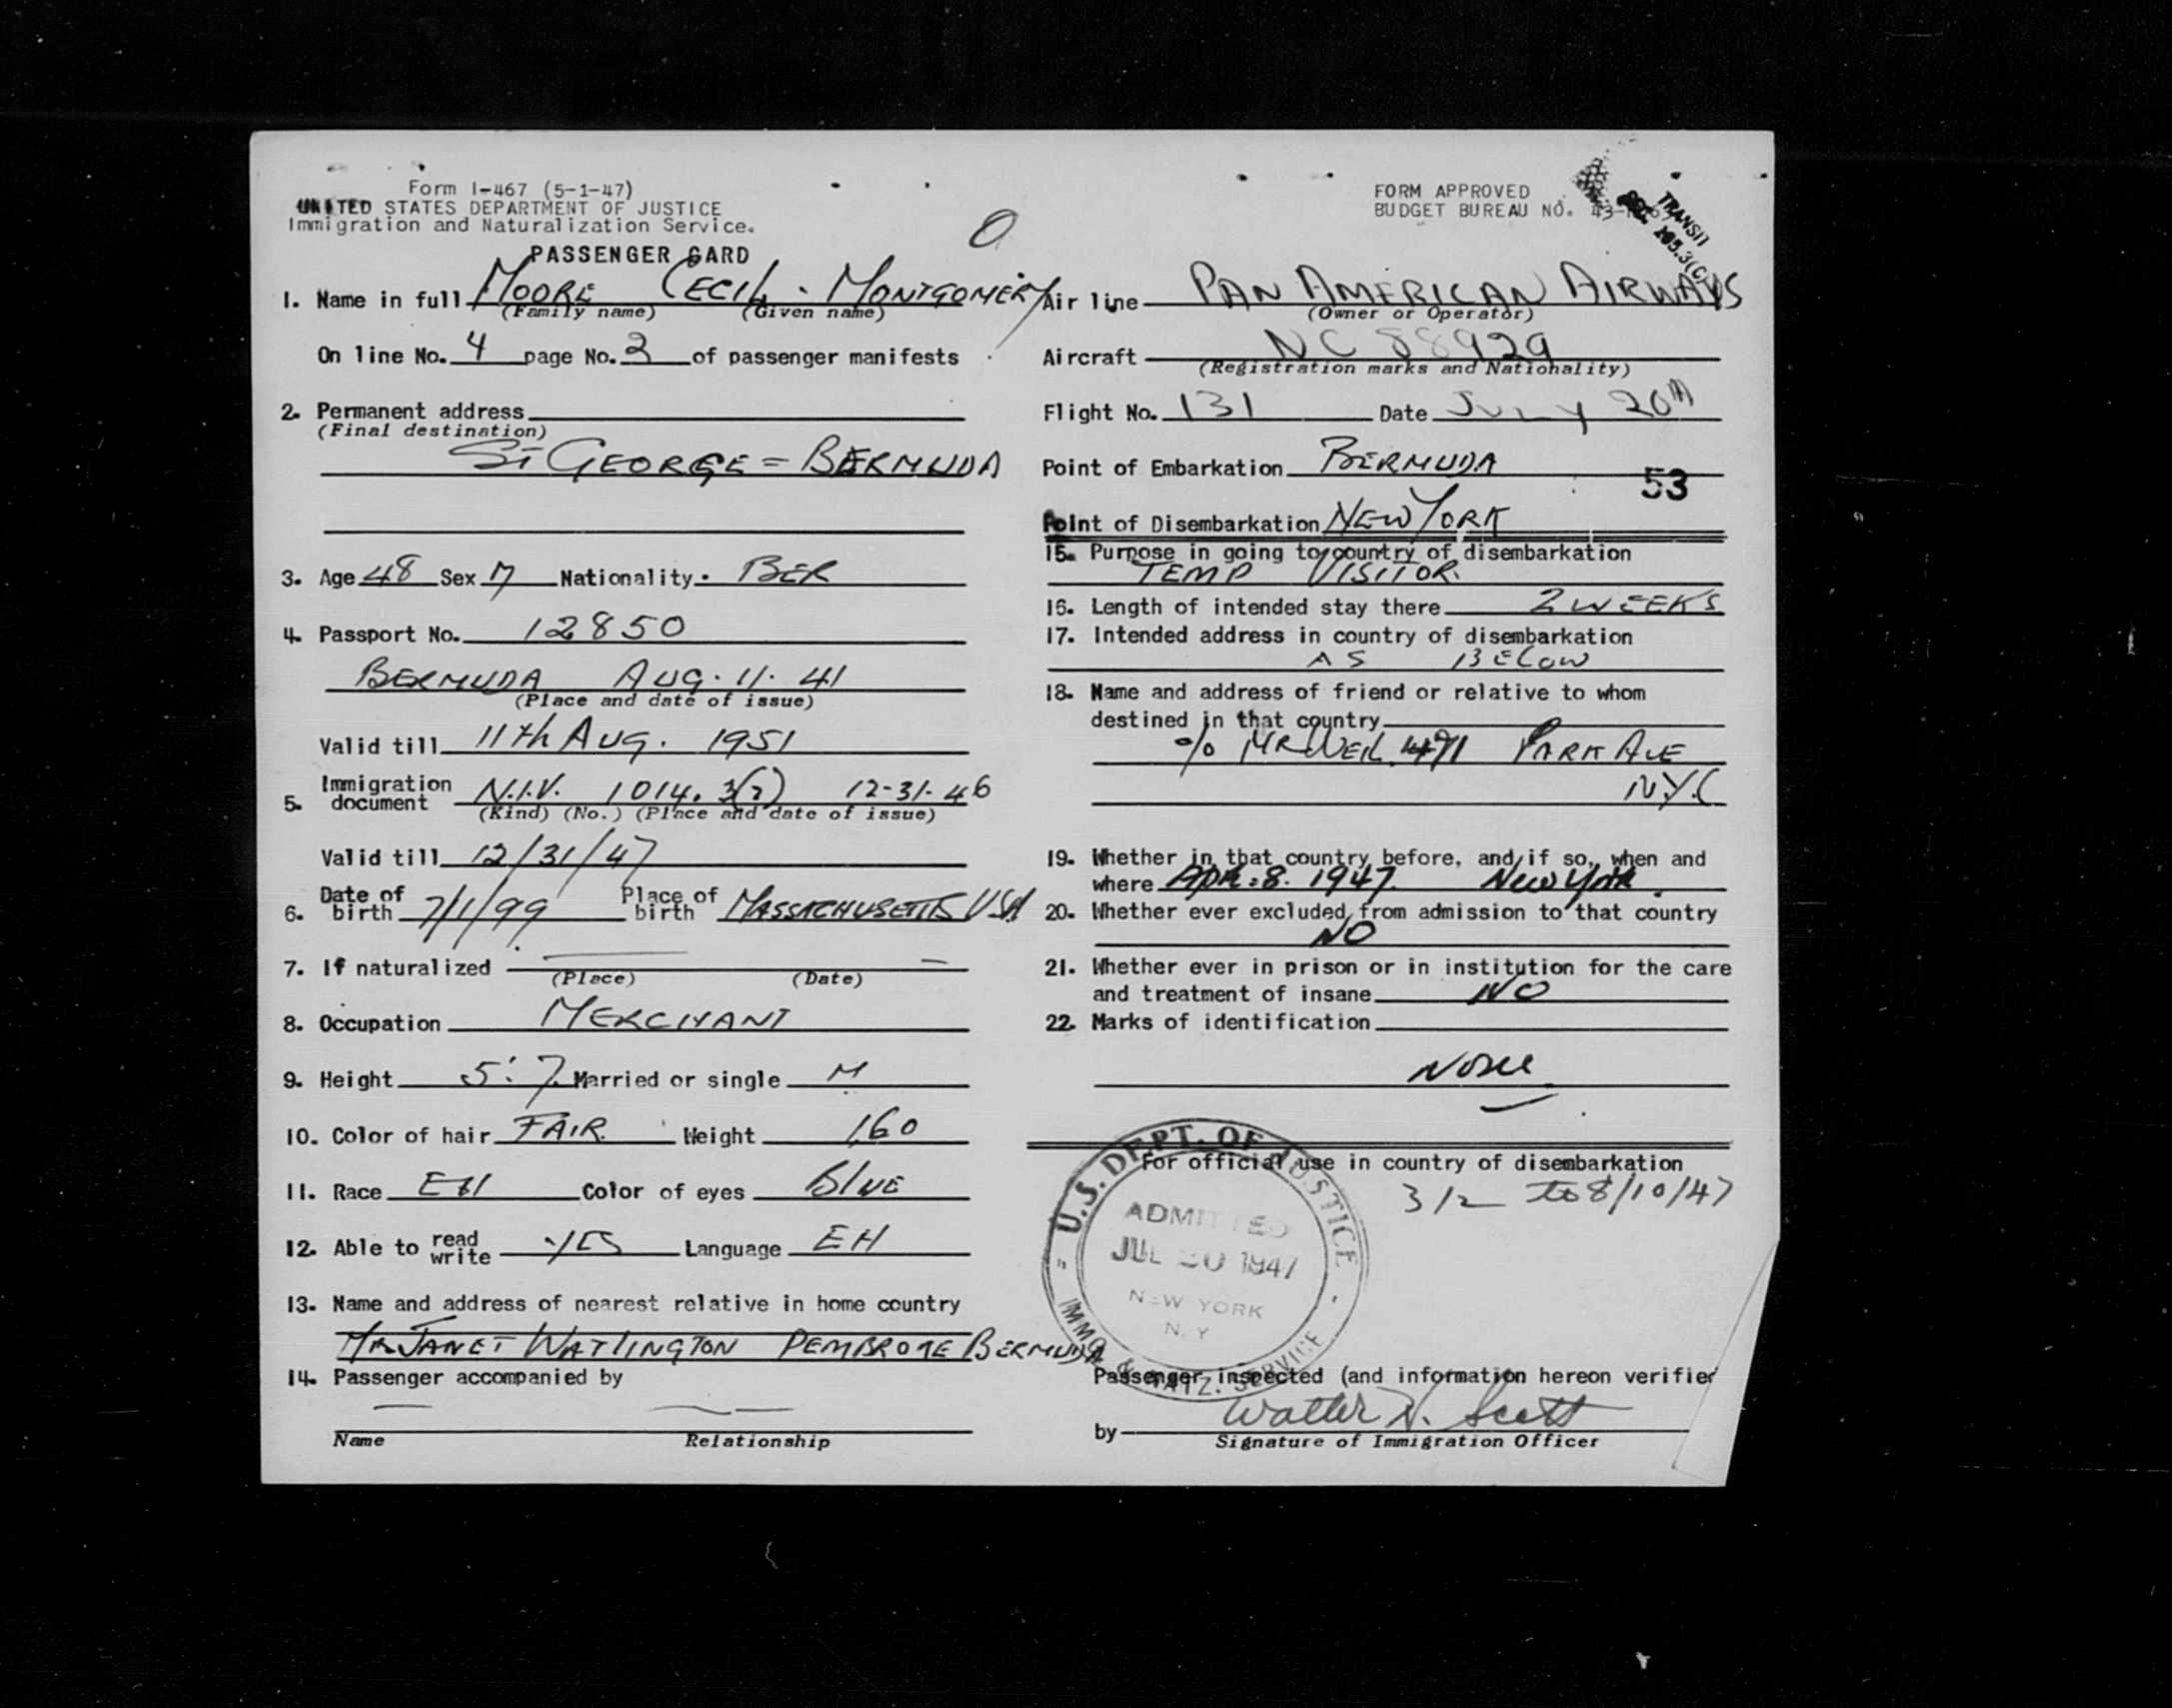 Form I-467 (5-1-47)
UNITED STATES DEPARTMENT OF JUSTICE
Immigration and Naturalization Service.
PASSENGER CARD
O
FORM APPROVED
BUDGET BUREAU NO. 43-
TRANSIT
SEC. 195.3(C)
1. Name in full MOORE CECIL. MONTGOMERY
(Family name) (Given name)
On line No. 4 page No. 3 of passenger manifests
2. Permanent address
(Final destination)
ST GEORGE = BERMUDA
3. Age 48 Sex M Nationality. BER
4. Passport No. 12850
BERMUDA AUG. 11. 41
(Place and date of issue)
Valid till 11th AUG. 1951
5. Immigration document N.I.V. 1014. 3(2) 12-31-46
(Kind) (No.) (Place and date of issue)
Valid till 12/31/47
6. Date of birth 7/1/99 Place of birth MASSACHUSETTS USA
7. If naturalized —
(Place) (Date)
8. Occupation MERCHANT
9. Height 5'.7 Married or single M
10. Color of hair FAIR. Weight 160
11. Race EH Color of eyes BlUE
12. Able to read write YES Language EH
13. Name and address of nearest relative in home country
JANET WATLINGTON PEMBROKE BERMUDA
14. Passenger accompanied by
— — —
Name Relationship
Air line PAN AMERICAN AIRWAYS
(Owner or Operator)
Aircraft NC 88929
(Registration marks and Nationality)
Flight No. 131 Date JULY 20th
Point of Embarkation BERMUDA
53
Point of Disembarkation NEW YORK
15. Purpose in going to country of disembarkation
TEMP VISITOR.
16. Length of intended stay there 2 WEEKS
17. Intended address in country of disembarkation
AS BELOW
18. Name and address of friend or relative to whom
destined in that country
c/o MR WEIL 471 PARK AVE
N.Y.C
19. Whether in that country before, and if so, when and
where APR. 8. 1947. New York.
20. Whether ever excluded from admission to that country
NO
21. Whether ever in prison or in institution for the care
and treatment of insane NO
22. Marks of identification
NONE
For official use in country of disembarkation
3/2 to 8/10/47
U.S. DEPT. OF JUSTICE
ADMITTED
JUL 20 1947
NEW YORK
N.Y
IMMIG. & NATZ. SERVICE
Passenger inspected (and information hereon verified
by Walter N. Scott
Signature of Immigration Officer